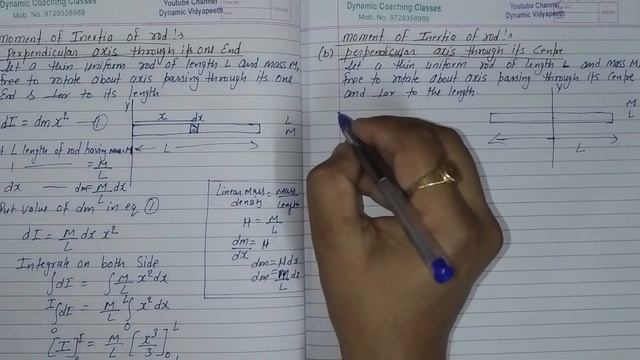 Dynamic Coaching Classes
Mob. No. 9729358989
Youtube Channel
Dynamic Vidyapeeth
moment of Inertia of rod :-
perpendicular axis through its one End
let a thin uniform rod of length L and mass M,
free to rotate about axis passing through its one
End is ⊥ar to its length
y
dI = dm x² — ①
x dx
L
M
L
L length of rod having mass M
1 —— = M/L
dx —— dm = M/L dx
Put value of dm in eq ①
dI = M/L dx x²
Integrate on both Side
∫dI = ∫ M/L x² dx
∫₀ᴵ dI = M/L ∫₀ᴸ x² dx
[I]₀ᴵ = M/L [x³/3]₀ᴸ
Linear mass density = Mass/Length
H = M/L
dm/dx = H
dm = H dx
dm = M/L dx
Dynamic Coaching Classes
Mob. No. 9729358989
Youtube Channel
Dynamic Vidyapeeth
moment of Inertia of rod :-
(b) perpendicular axis through its Centre
let a thin uniform rod of length L and mass M,
free to rotate about axis passing through its Centre
and ⊥ar to the length.
y
M
L